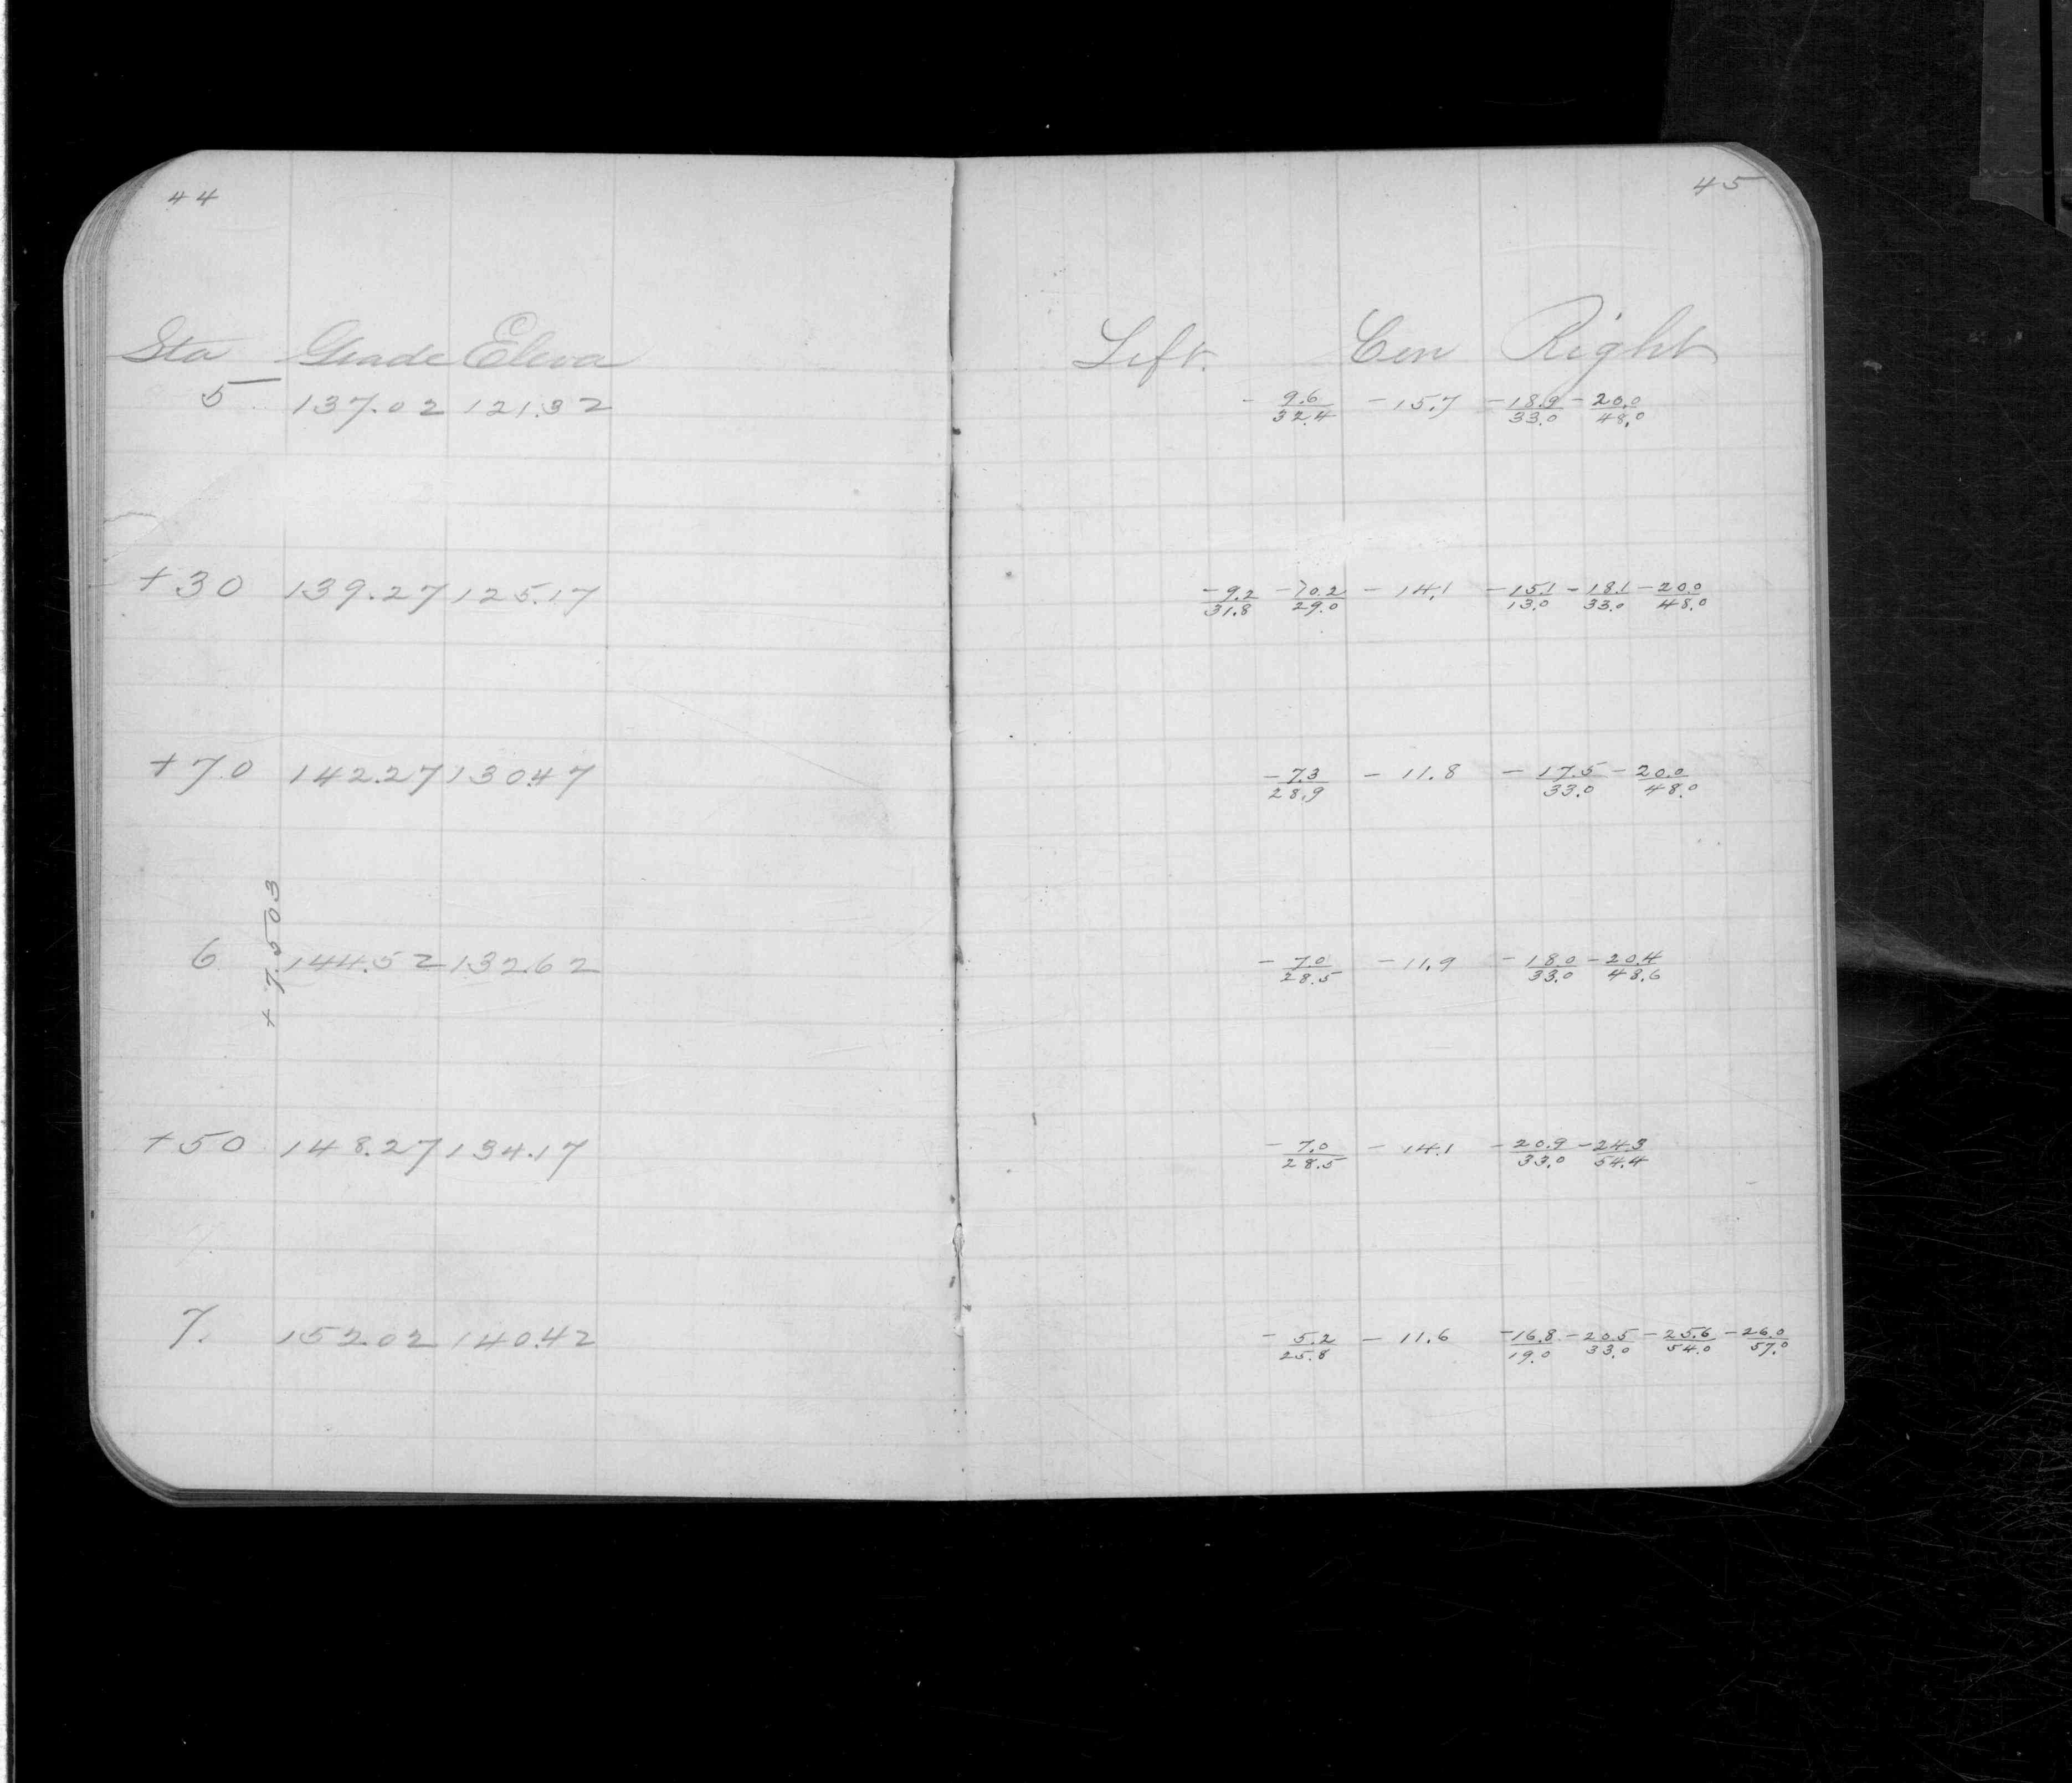 44
Sta Grade Eleva
5 137.02 121.32
+30 139.27 125.17
+70 142.27 130.47
+7.503
6 144.52 132.62
+50 148.27 134.17
7. 152.02 140.42
45
Left. Cen Right
- 9.6/32.4 - 15.7 - 18.9/33.0 - 20.0/48.0
- 9.2/31.8 - 10.2/29.0 - 14.1 - 15.1/13.0 - 18.1/33.0 - 20.0/48.0
- 7.3/28.9 - 11.8 - 17.5/33.0 - 20.0/48.0
- 7.0/28.5 - 11.9 - 18.0/33.0 - 20.4/48.6
- 7.0/28.5 - 14.1 - 20.9/33.0 - 24.3/54.4
- 5.2/25.8 - 11.6 - 16.8/19.0 - 20.5/33.0 - 25.6/54.0 - 26.0/57.0